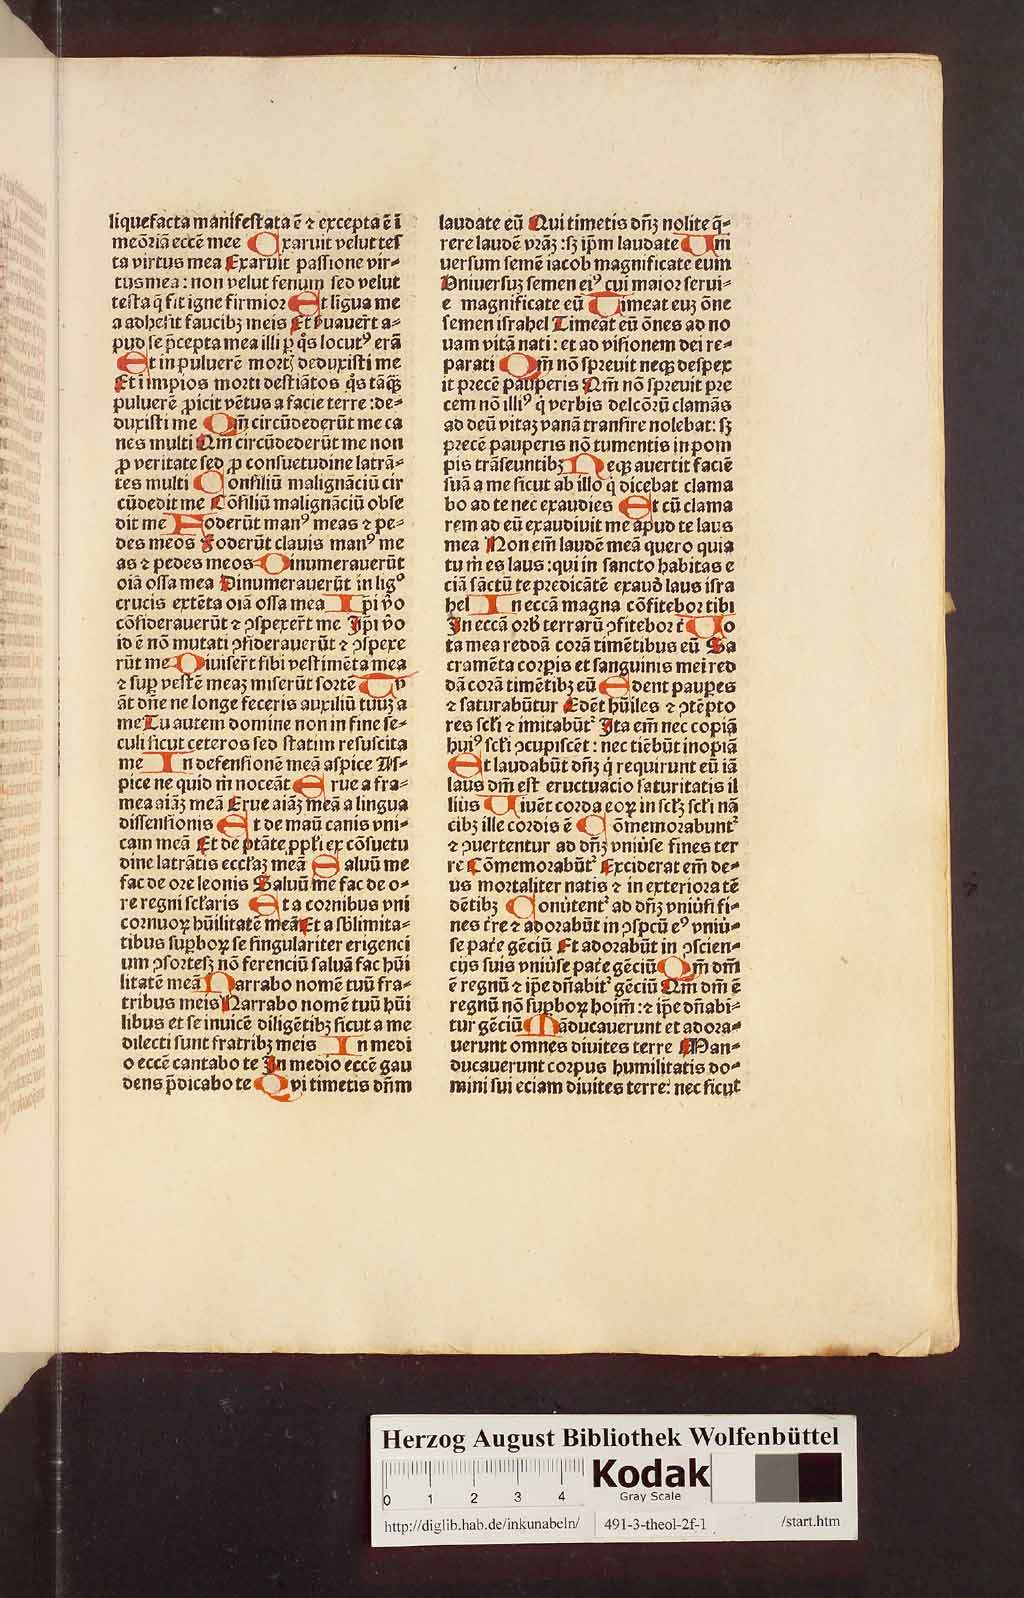 liquefacta manifestata ē ⁊ excepta ē ī
meōriā eccē mee Exaruit velut tes
ta virtus mea Exaruit passione vir⸗
tus mea : non velut fenum sed velut
testa q̄ fit igne firmior Et ligua me
a adhesit faucibꝫ meis Et iuuauer̄t a⸗
pud se p̄cepta mea illi ꝑ q̄s locutꝰ erā
Et in puluerē mortꝭ deduxisti me
Et ī impios morti destīatos q̄s tāqꝫ
puluerē ꝓicit vētus a facie terre : de⸗
duxisti me Qm̄ circūdederūt me ca
nes multi Qm̄ circūdederūt me non
ꝓ veritate sed ꝓ consuetudine latrā⸗
tes multi Consiliū malignāciū cir
cūdedit me Cōsiliū malignāciū obse
dit me Foderūt manꝰ meas ⁊ pe⸗
des meos Foderūt clauis manꝰ me
as ⁊ pedes meos Dinumerauerūt
oīa ossa mea Dinumerauerūt in ligꝰ
crucis extēta oīa ossa mea Ip̄i v̄o
cōsiderauerūt ⁊ ꝯspexer̄t me Ip̄i v̄o
id ē nō mutati ꝯsiderauerūt ⁊ ꝯspexe
rūt me Diuiser̄t sibi vestimēta mea
⁊ suꝑ vestē meaꝫ miserūt sortē Tv
āt dn̄e ne longe feceris auxiliū tuuꝫ a
me Tu autem domine non in fine se⸗
culi sicut ceteros sed statim resuscita
me In defensionē meā aspice As⸗
pice ne quid m̄ noceāt Erue a fra⸗
mea aīaꝫ meā Erue aīaꝫ meā a lingua
dissensionis Et de maū canis vni⸗
cam meā Et de ptāte ppl̄i ex cōsuetu
dine latrātis eccl̄aꝫ meā Saluū me
fac de ore leonis Saluū me fac de o⸗
re regni scl̄aris Et a cornibus vni
cornuoꝝ hūilitatē meā Et a sb̄limita⸗
tibus suꝑboꝝ se singulariter erigenci
um ꝯsortesꝫ nō ferenciū saluā fac hūi
litatē meā Narrabo nomē tuū fra⸗
tribus meis Narrabo nomē tuū hūi
libus et se inuicē diligētibꝫ sicut a me
dilecti sunt fratribꝫ meis In medi
o eccē cantabo te In medio eccē gau
dens p̄dicabo te Qvi timetis dn̄m
laudate eū Qui timetis dn̄ꝫ nolite q̄⸗
rere laudē vrāꝫ : sꝫ ip̄m laudate Vni
uersum semē iacob magnificate eum
Vniuersuꝫ semen eiꝰ cui maior serui⸗
e magnificate eū Timeat euꝫ ōne
semen israhel Timeāt eū ōnes ad no
uam vitā nati : et ad visionem dei re⸗
parati Qm̄ nō spreuit neqꝫ despex
it precē pauperis Qm̄ nō spreuit pre
cem nō illiꝰ q̇ verbis delcōrū clamās
ad deū vitaꝫ vanā transire nolebat : sꝫ
precē pauperis nō tumentis in pom
pis trāseuntibꝫ Neqꝫ auertit faciē
suā a me sicut ab illo q̇ dicebat clama
bo ad te nec exaudies Et cū clama
rem ad eū exaudiuit me apud te laus
mea Non em̄ laudē meā quero quia
tu m̄ es laus : qui in sancto habitas e
ciā sāctū te predicātē exaud̄ laus isra
hel In eccā magna cōfitebor tibi
In eccā orb̄ terrarū ꝯfitebor t̄ Uo
ta mea reddā corā timētibus eū Sa
cramēta corꝑis et sanguinis mei red
dā corā timētibꝫ eū Edent pauꝑes
⁊ saturabūtur Edēt hūiles ⁊ ꝯtēpto
res scl̄i ⁊ imitabūtᷣ Ita em̄ nec copiā
huiꝰ scl̄i ꝯcupiscēt : nec tiēbūt inopiā
Et laudabūt dn̄ꝫ q̇ requirunt eū iā
laus dm̄ est eructuacio saturitatis il
lius Viuēt corda eoꝝ in scl̄ꝫ scl̄i nā
cibꝫ ille cordis ē Cōmemorabuntᷣ
⁊ ꝯuertentur ad dn̄ꝫ vniūse fines ter
re Cōmemorabūtᷣ Exciderat em̄ de⸗
us mortaliter natis ⁊ in exteriora tē
dētibꝫ Conūtentᷣ ad dn̄ꝫ vniūsi fi⸗
nes t̄re ⁊ adorabūt in ꝯspcū eꝰ vniū⸗
se pat̄e gēciū Et adorabūt in ꝯscien⸗
cijs suis vniūse pat̄e gēciū Qm̄ dm̄
ē regnū ⁊ ip̄e dn̄abitᷣ gēciū Qm̄ dm̄ ē
regnū nō suꝑboꝝ hoim̄ : ⁊ ip̄e dn̄abi⸗
tur gēciū Māducauerunt et adora⸗
uerunt omnes diuites terre Man⸗
ducauerunt corpus humilitatis do⸗
mini sui eciam diuites terre : nec sicut
Herzog August Bibliothek Wolfenbüttel
0 1 2 3 4
Kodak
Gray Scale
http://diglib.hab.de/inkunabeln/ 491-3-theol-2f-1 /start.htm